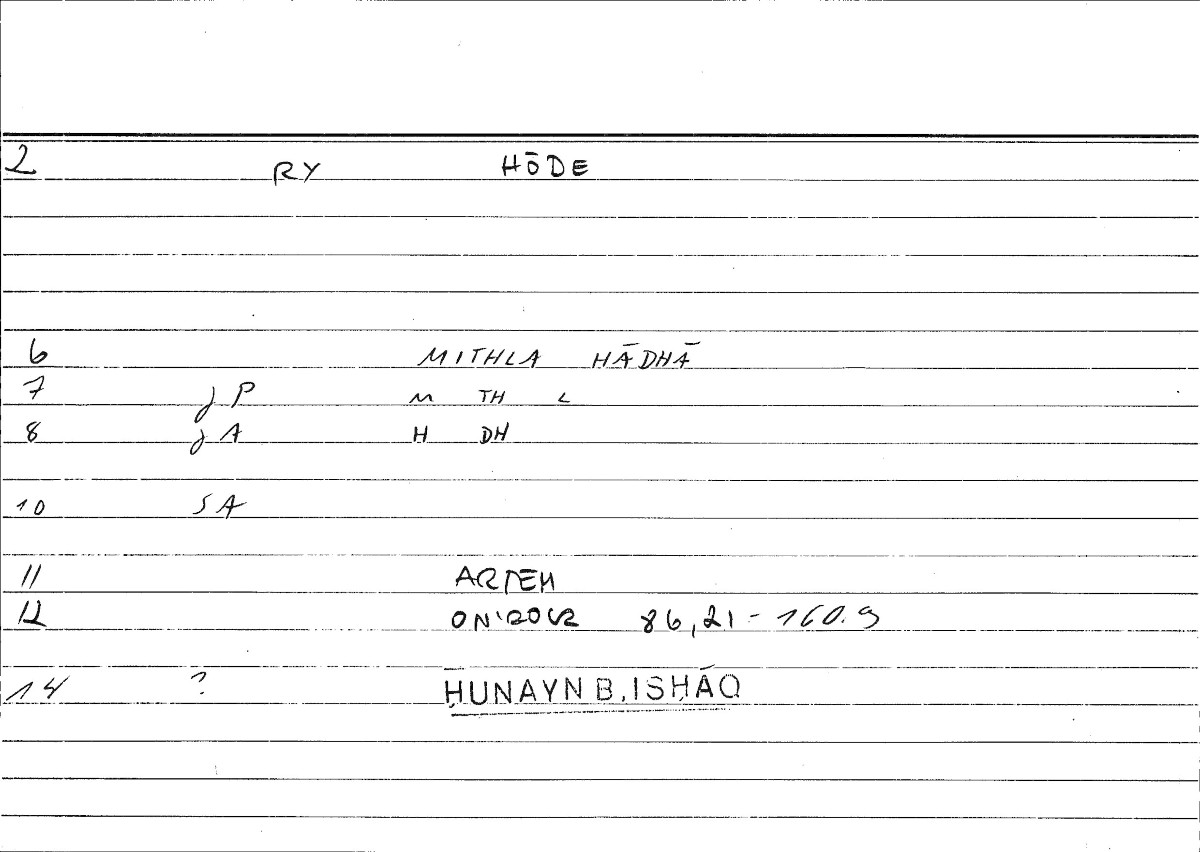 2 RY HŌDE
6 MITHLA HĀDHĀ
7 JP M TH L
8 JA H DH
10 SA
11 ARTEM
12 ONIROCR 86,21-160.9
14 ? ḤUNAYN B. ISḤĀQ